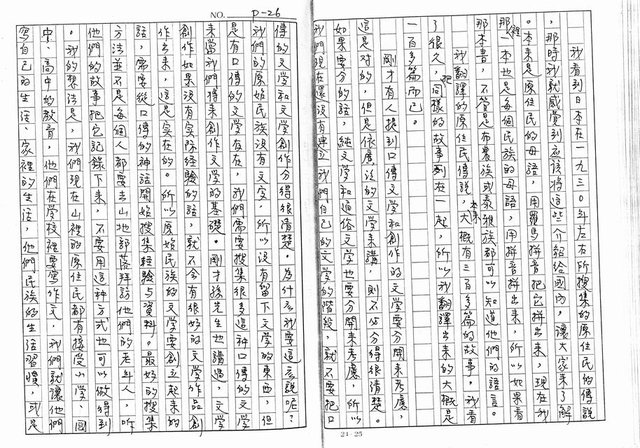 我看到日本在一九三〇年左右所搜集的原住民的傳說
那時我就感覺到應該將這些介紹給國內，讓大家來了解
本來是原住民的母語，用羅馬拼音把它拼出來，現在我
那裡一本也是每個民族的母語，用拼音拼出來，所以如果看
那本書，不管是布農族或泰雅族都可以知道他們的語言。
我翻譯的原住民傳說，大概有三百多篇的故事，我
了很久，把同樣的故事列在一起，所以我翻譯出來的大概是
一百多篇而已。
剛才有人提到口傳文學和創作的文學要分開來考慮
這是對的，但是依廣泛的文學來講，則不必分得很清楚。
如果要分的話，純文學和通俗文學也要分開來考慮
我們現在還沒有建立我們自己的文學的階段，就不要把口
NO. P-26
傳的文學和文學創作分得很清楚。為什麼我要這麼說呢？
我們的原始民族沒有文字，所以沒有留下文學的東西，但
是有口傳的文學存在，我們需要搜集很多這種口傳的文學
來當我們將來創作文學的基礎。剛才孫先生也講過，文學
創作如果沒有實際經驗，就不會有很好的文學作品創
作出來，這是實在的。所以原始民族的文學要創立起來的
話，需要從口傳的神話開始搜集經驗與資料。最好的搜集
方法並不是每個人都要去山地部落拜訪他們的老年人，聽
他們的故事把它記錄下來，不要用這種方式也可以做得到
。我的想法是，我們現在山裡的原住民都有接受小學、國
中、高中的教育，他們在學校裡要寫作文，我們就讓他們
寫自己的生活，家裡的生活，他們民族的生活習慣，或是
21-25